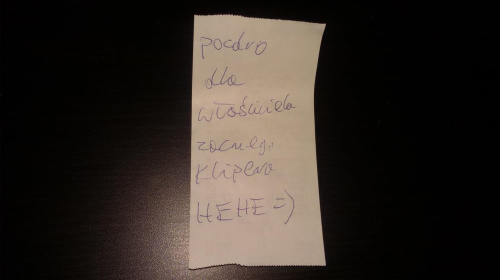 pozdro
dla
właściciela
zacnego
Klipera
HEHE =)